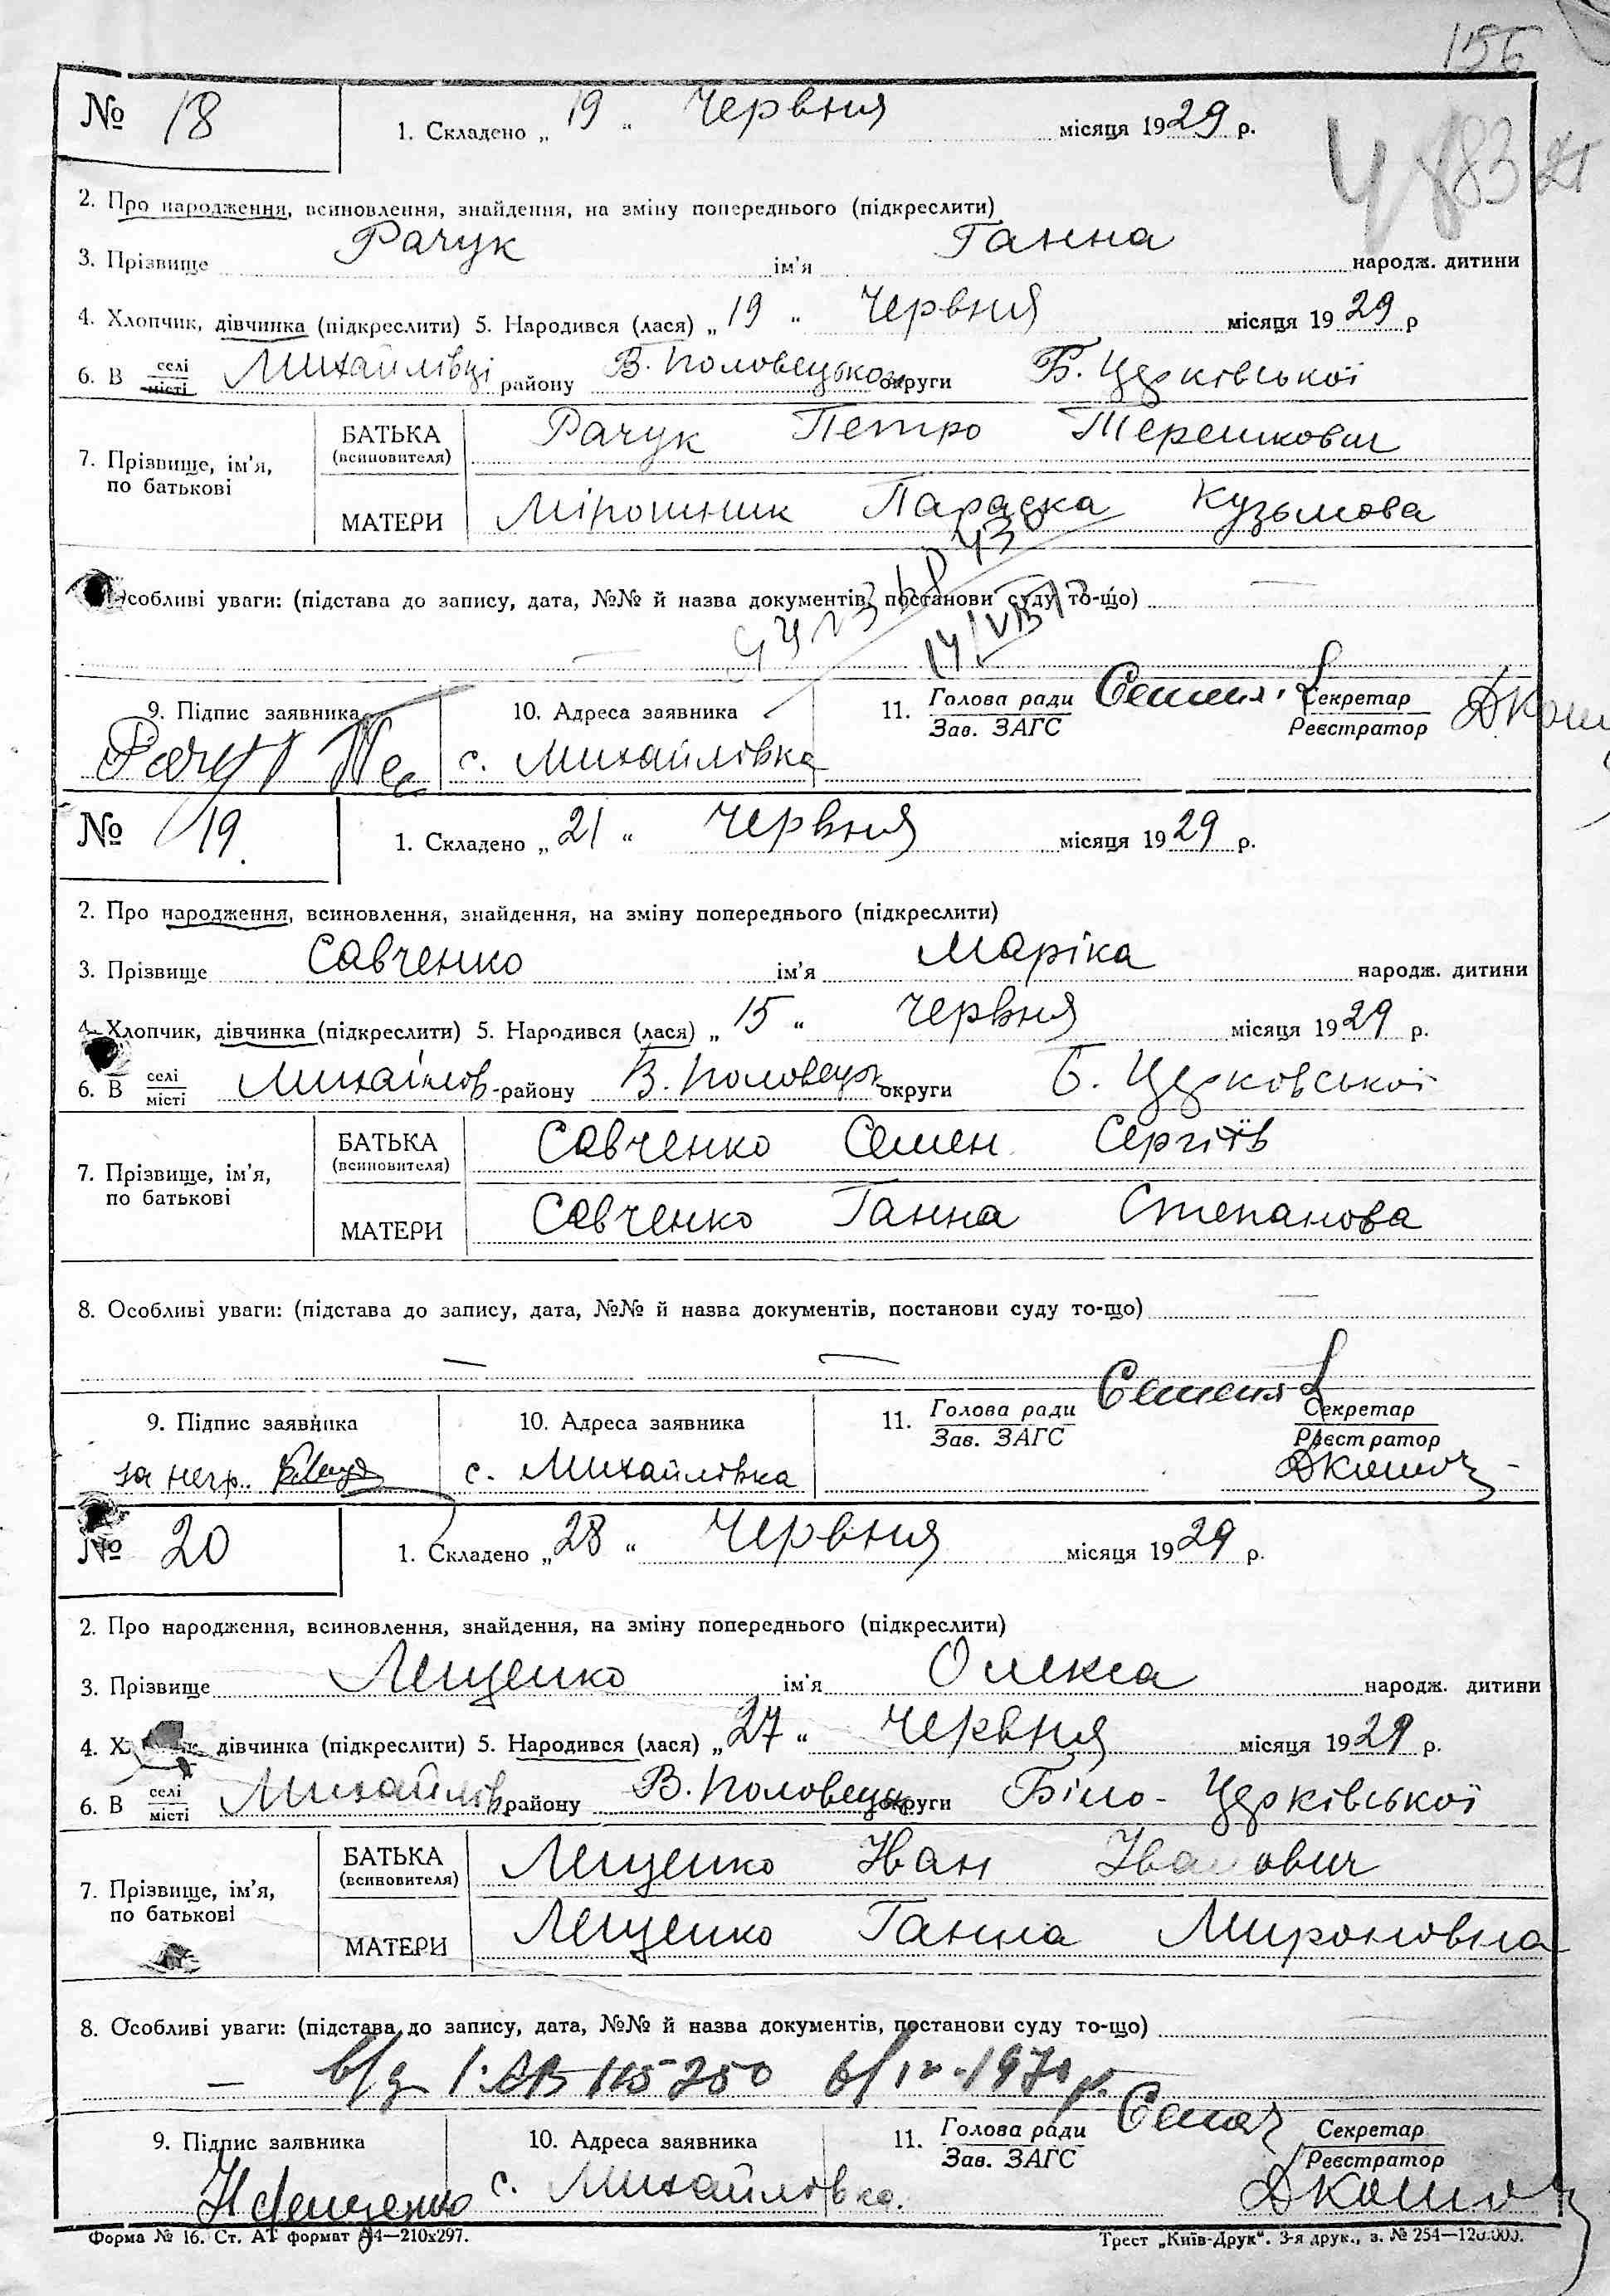 156
№ 18
1. Складено „ 19 “ Червня місяця 1929 р.
2. Про народження, всиновлення, знайдення, на зміну попереднього (підкреслити)
3. Прізвище Рачук ім'я Ганна народж. дитини
4. Хлопчик, дівчинка (підкреслити) 5. Народився (лася) „ 19 “ Червня місяця 1929 р
6. В селі Михайлівці району В. Половецького округи Б. Церківської
місті
БАТЬКА Рачук Петро Терешкович
(всиновителя)
7. Прізвище, ім'я,
по батькові
МАТЕРИ Мірошник Параска Кузьмова
собливі уваги: (підстава до запису, дата, №№ й назва документів, постанови суду то-що)
9. Підпис заявника 10. Адреса заявника 11. Голова ради Секретар
Зав. ЗАГС Реєстратор
Рачук с. Михайлівка
№ 19.
1. Складено „ 21 “ Червня місяця 1929 р.
2. Про народження, всиновлення, знайдення, на зміну попереднього (підкреслити)
3. Прізвище Савченко ім'я Маріка народж. дитини
4. Хлопчик, дівчинка (підкреслити) 5. Народився (лася) „ 15 “ Червня місяця 1929 р.
6. В селі Михайлов- району В. Половецьк округи Б. Церковської
місті
БАТЬКА Савченко Семен Сергіїв
(всиновителя)
7. Прізвище, ім'я,
по батькові
МАТЕРИ Савченко Ганна Степанова
8. Особливі уваги: (підстава до запису, дата, №№ й назва документів, постанови суду то-що)
9. Підпис заявника 10. Адреса заявника 11. Голова ради Секретар
Зав. ЗАГС Реєстратор
за негр. с. Михайлівка
№ 20
1. Складено „ 28 “ Червня місяця 1929 р.
2. Про народження, всиновлення, знайдення, на зміну попереднього (підкреслити)
3. Прізвище Лещенко ім'я Олекса народж. дитини
4. дівчинка (підкреслити) 5. Народився (лася) „ 27 “ Червня місяця 1929 р.
6. В селі Михайлів району В. Половецьк округи Біло-Церківської
місті
БАТЬКА Лещенко Іван Іванович
(всиновителя)
7. Прізвище, ім'я,
по батькові
МАТЕРИ Лещенко Ганна Мироновна
8. Особливі уваги: (підстава до запису, дата, №№ й назва документів, постанови суду то-що)
9. Підпис заявника 10. Адреса заявника 11. Голова ради Секретар
Зав. ЗАГС Реєстратор
Лещенко с. Михайлівка.
Форма № 16. Ст. АТ формат А4—210х297.
Трест „Київ-Друк“. 3-я друк., з. № 254—120.000.